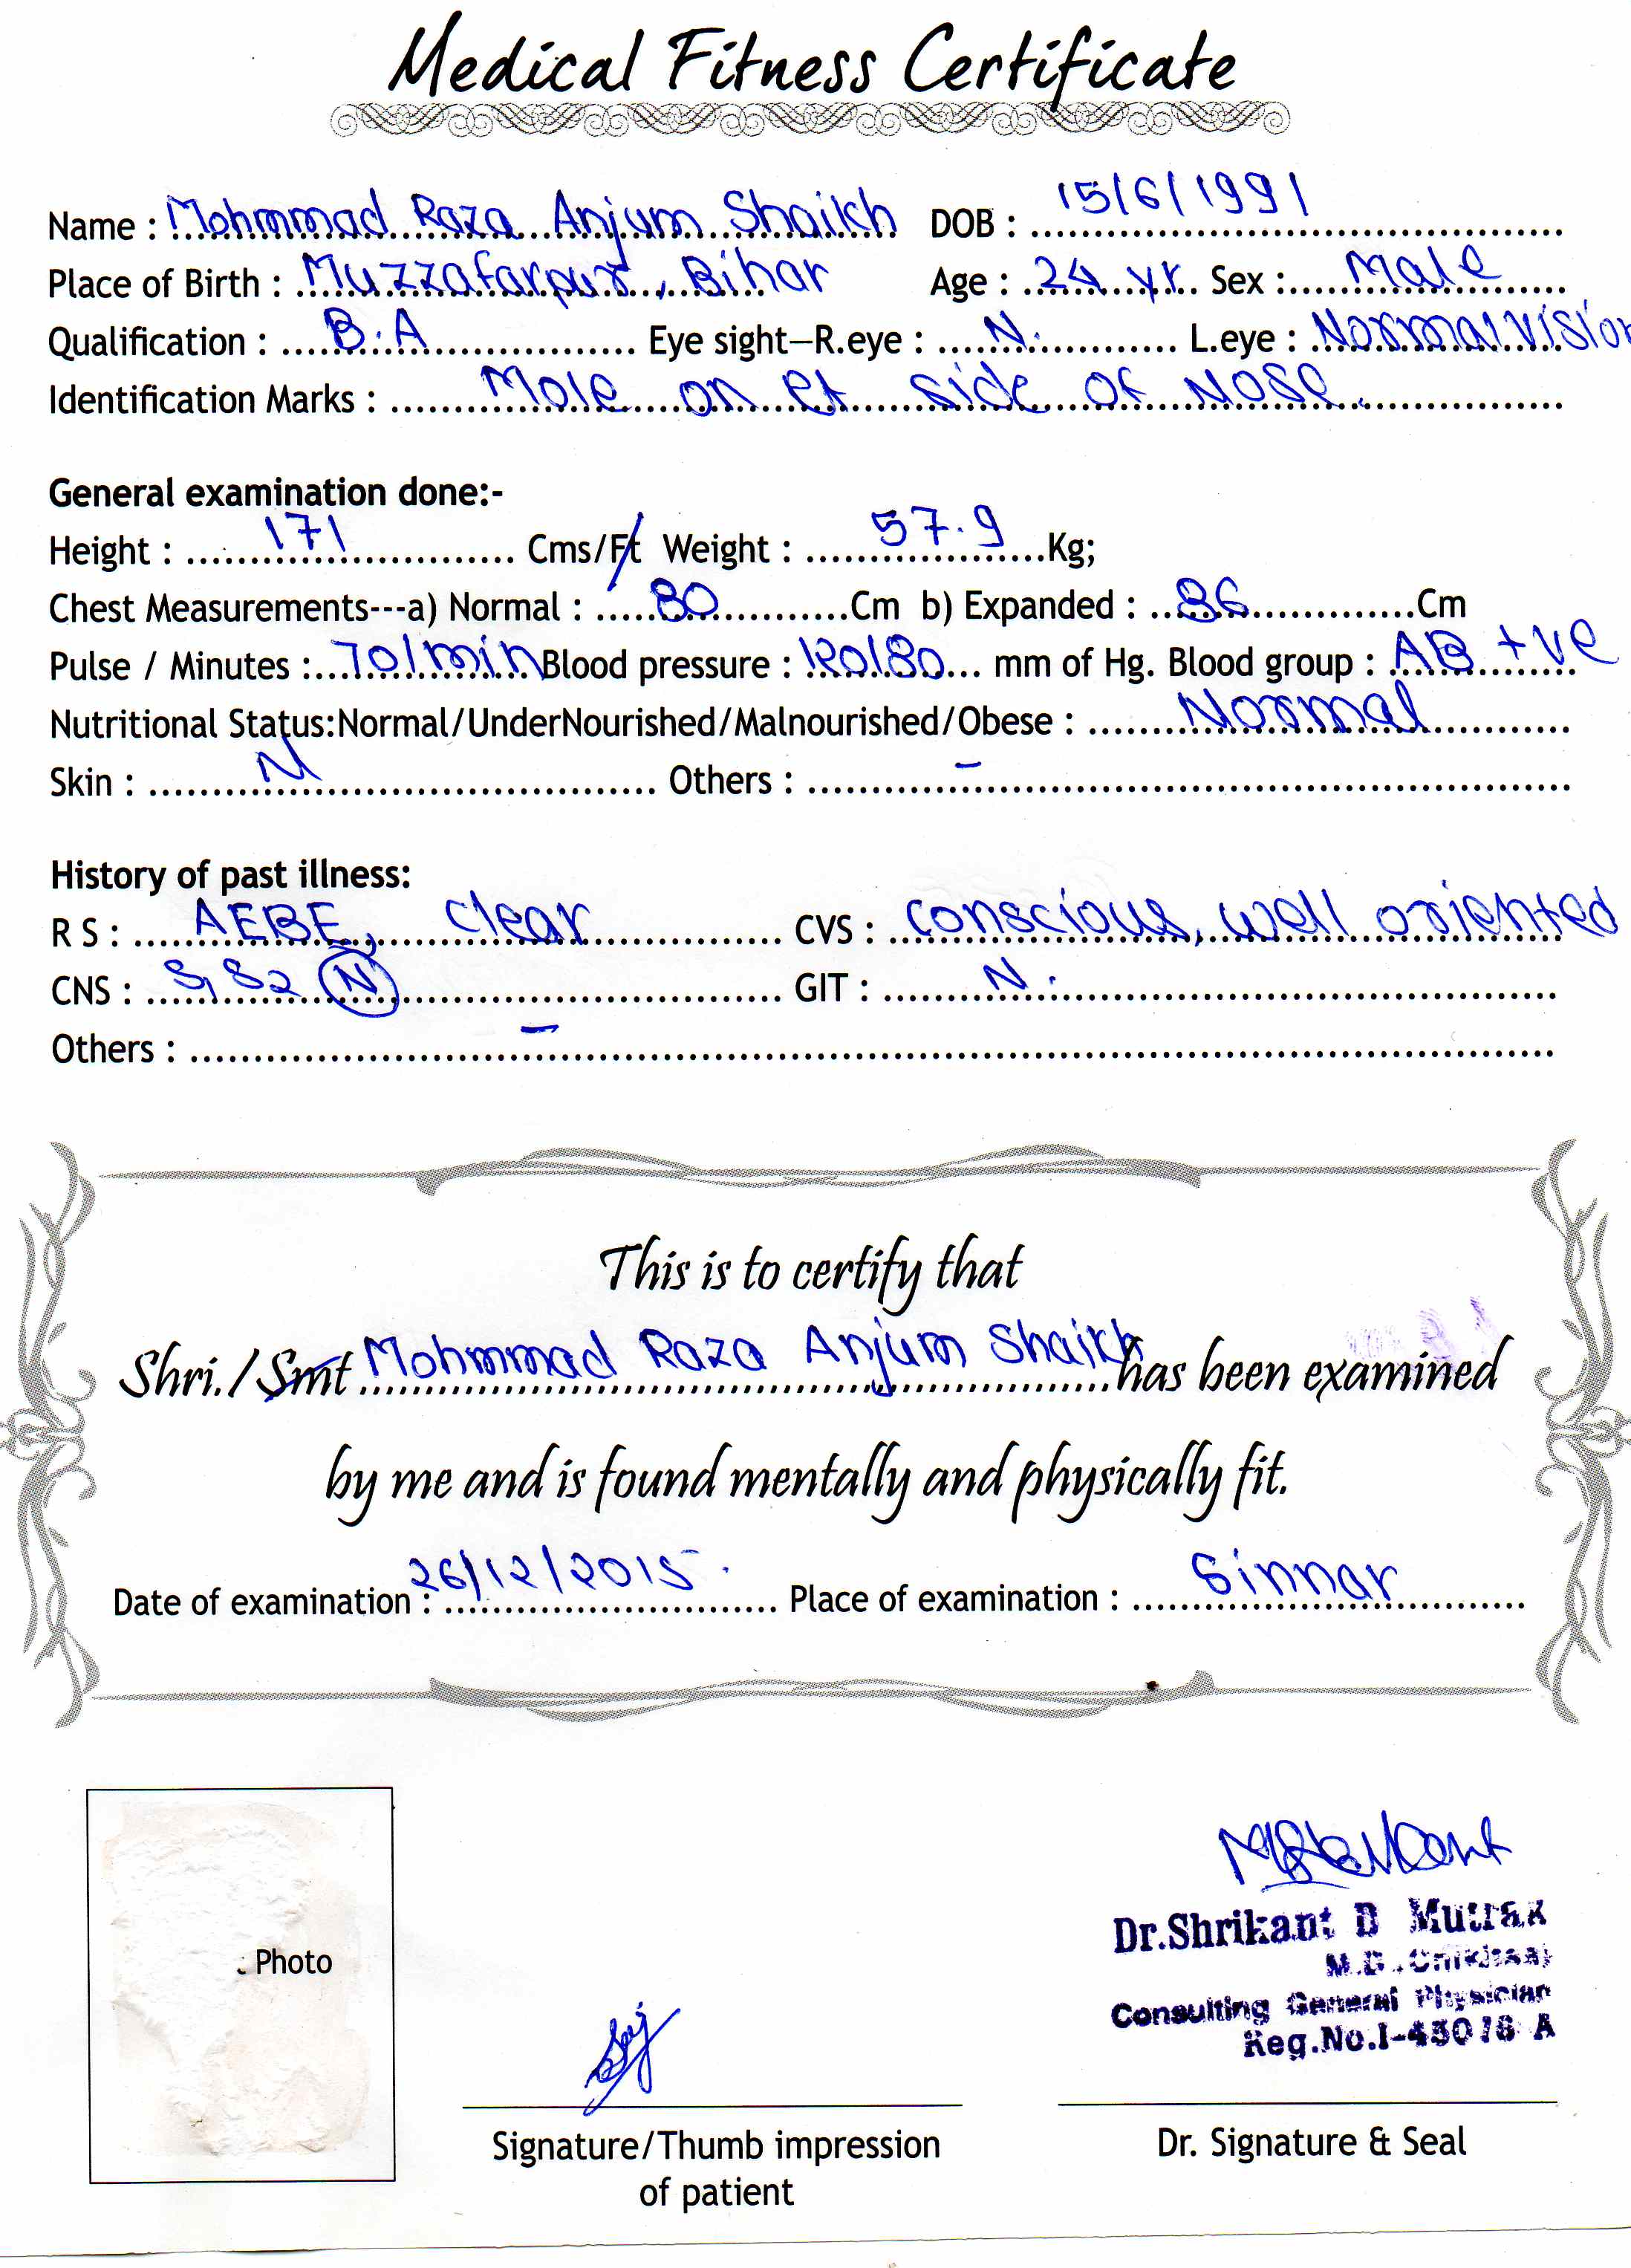 Medical Fitness Certificate
Name : Mohmmad Raza Anjum Shaikh DOB : 15/6/1991
Place of Birth : Muzzafarpur, Bihar Age : 24 yr. Sex : Male
Qualification : B.A Eye sight–R.eye : N. L.eye : Normal vision
Identification Marks : Mole on side of Nose.
General examination done:-
Height : 171 Cms/Ft Weight : 57.9 Kg;
Chest Measurements---a) Normal : 80 Cm b) Expanded : 86 Cm
Pulse / Minutes : 70/min Blood pressure : 120/80 mm of Hg. Blood group : AB +ve
Nutritional Status:Normal/UnderNourished/Malnourished/Obese : Normal
Skin : N Others : –
History of past illness:
R S : AEBE, clear CVS : conscious, well oriented
CNS : S1S2 N GIT : N.
Others : –
This is to certify that
Shri./Smt Mohmmad Raza Anjum Shaikh has been examined
by me and is found mentally and physically fit.
Date of examination : 26/12/2015. Place of examination : Sinnar
Photo
Dr.Shrikant B Mutrak
M.D.
Consulting General Physician
Reg.No.
Signature/Thumb impression
of patient
Dr. Signature & Seal